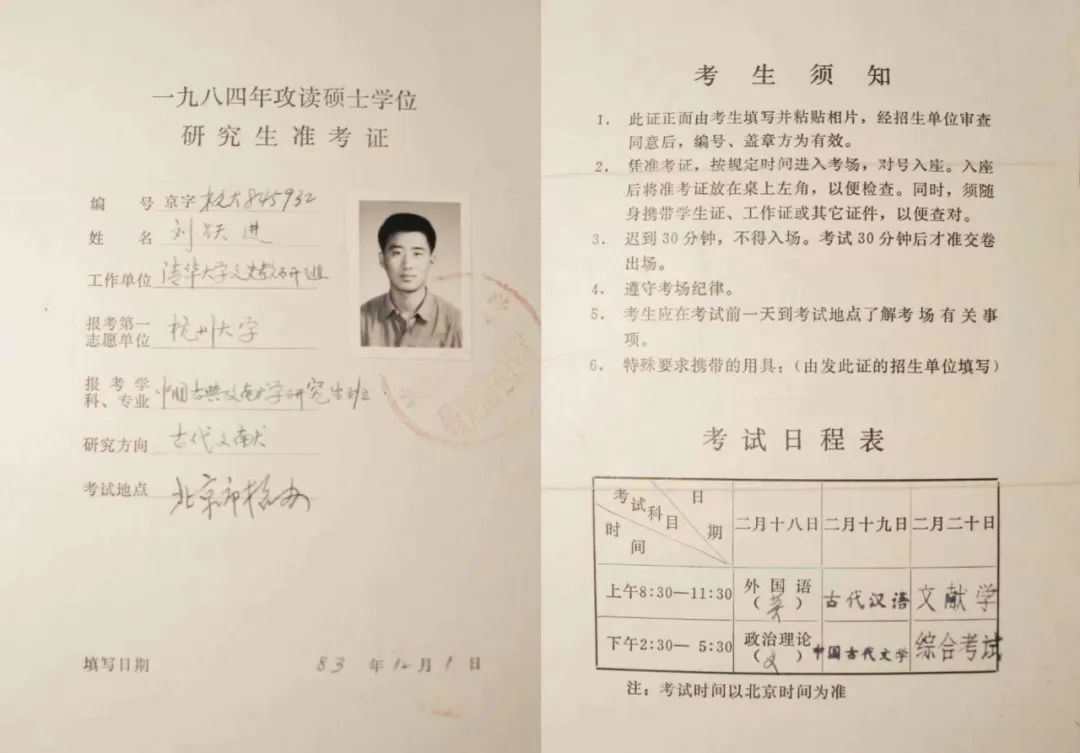 一九八四年攻读硕士学位
研究生准考证
编 号 京字杭大845932
姓 名 刘跃进
工作单位 清华大学文史教研组
报考第一
志愿单位 杭州大学
报考学
科、专业 中国古典文献学研究生班
研究方向 古代文献
考试地点 北京市招办
填写日期 83 年 12 月 1 日
考生须知
1. 此证正面由考生填写并粘贴相片，经招生单位审查
同意后，编号、盖章方为有效。
2. 凭准考证，按规定时间进入考场，对号入座。入座
后将准考证放在桌上左角，以便检查。同时，须随
身携带学生证、工作证或其它证件，以便查对。
3. 迟到30分钟，不得入场。考试30分钟后才准交卷
出场。
4. 遵守考场纪律。
5. 考生应在考试前一天到考试地点了解考场有关事
项。
6. 特殊要求携带的用具：（由发此证的招生单位填写）
考试日程表
考试科目 日期 时间 二月十八日 二月十九日 二月二十日
上午8:30—11:30 外国语（英） 古代汉语 文献学
下午2:30—5:30 政治理论（文） 中国古代文学 综合考试
注：考试时间以北京时间为准